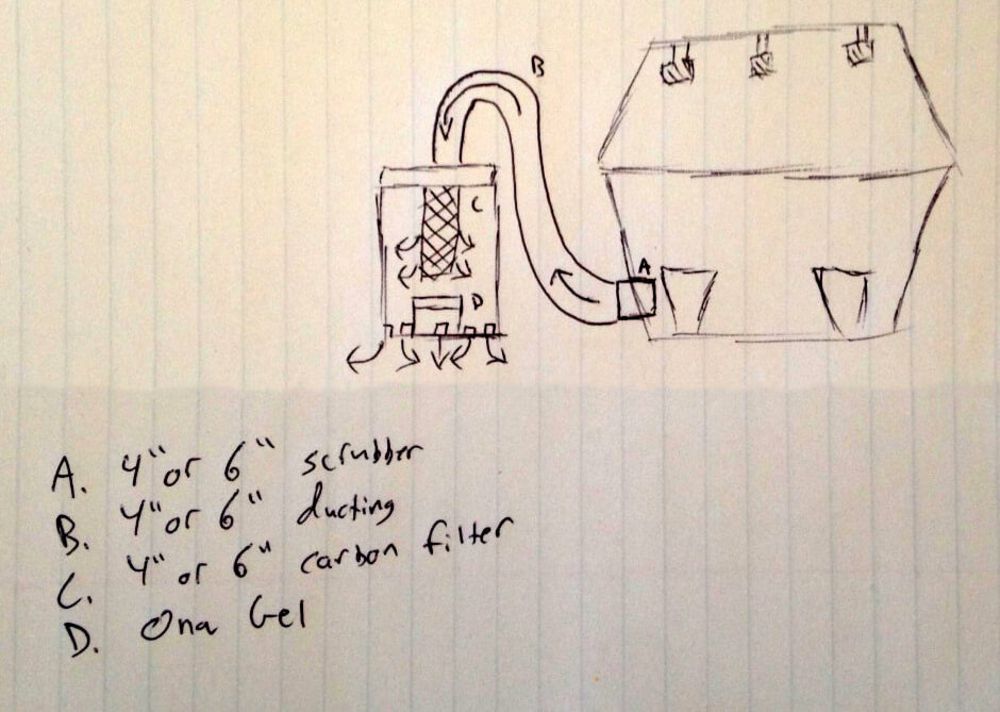 B
C
A
D
A. 4" or 6" scrubber
B. 4" or 6" ducting
C. 4" or 6" carbon filter
D. Ona Gel